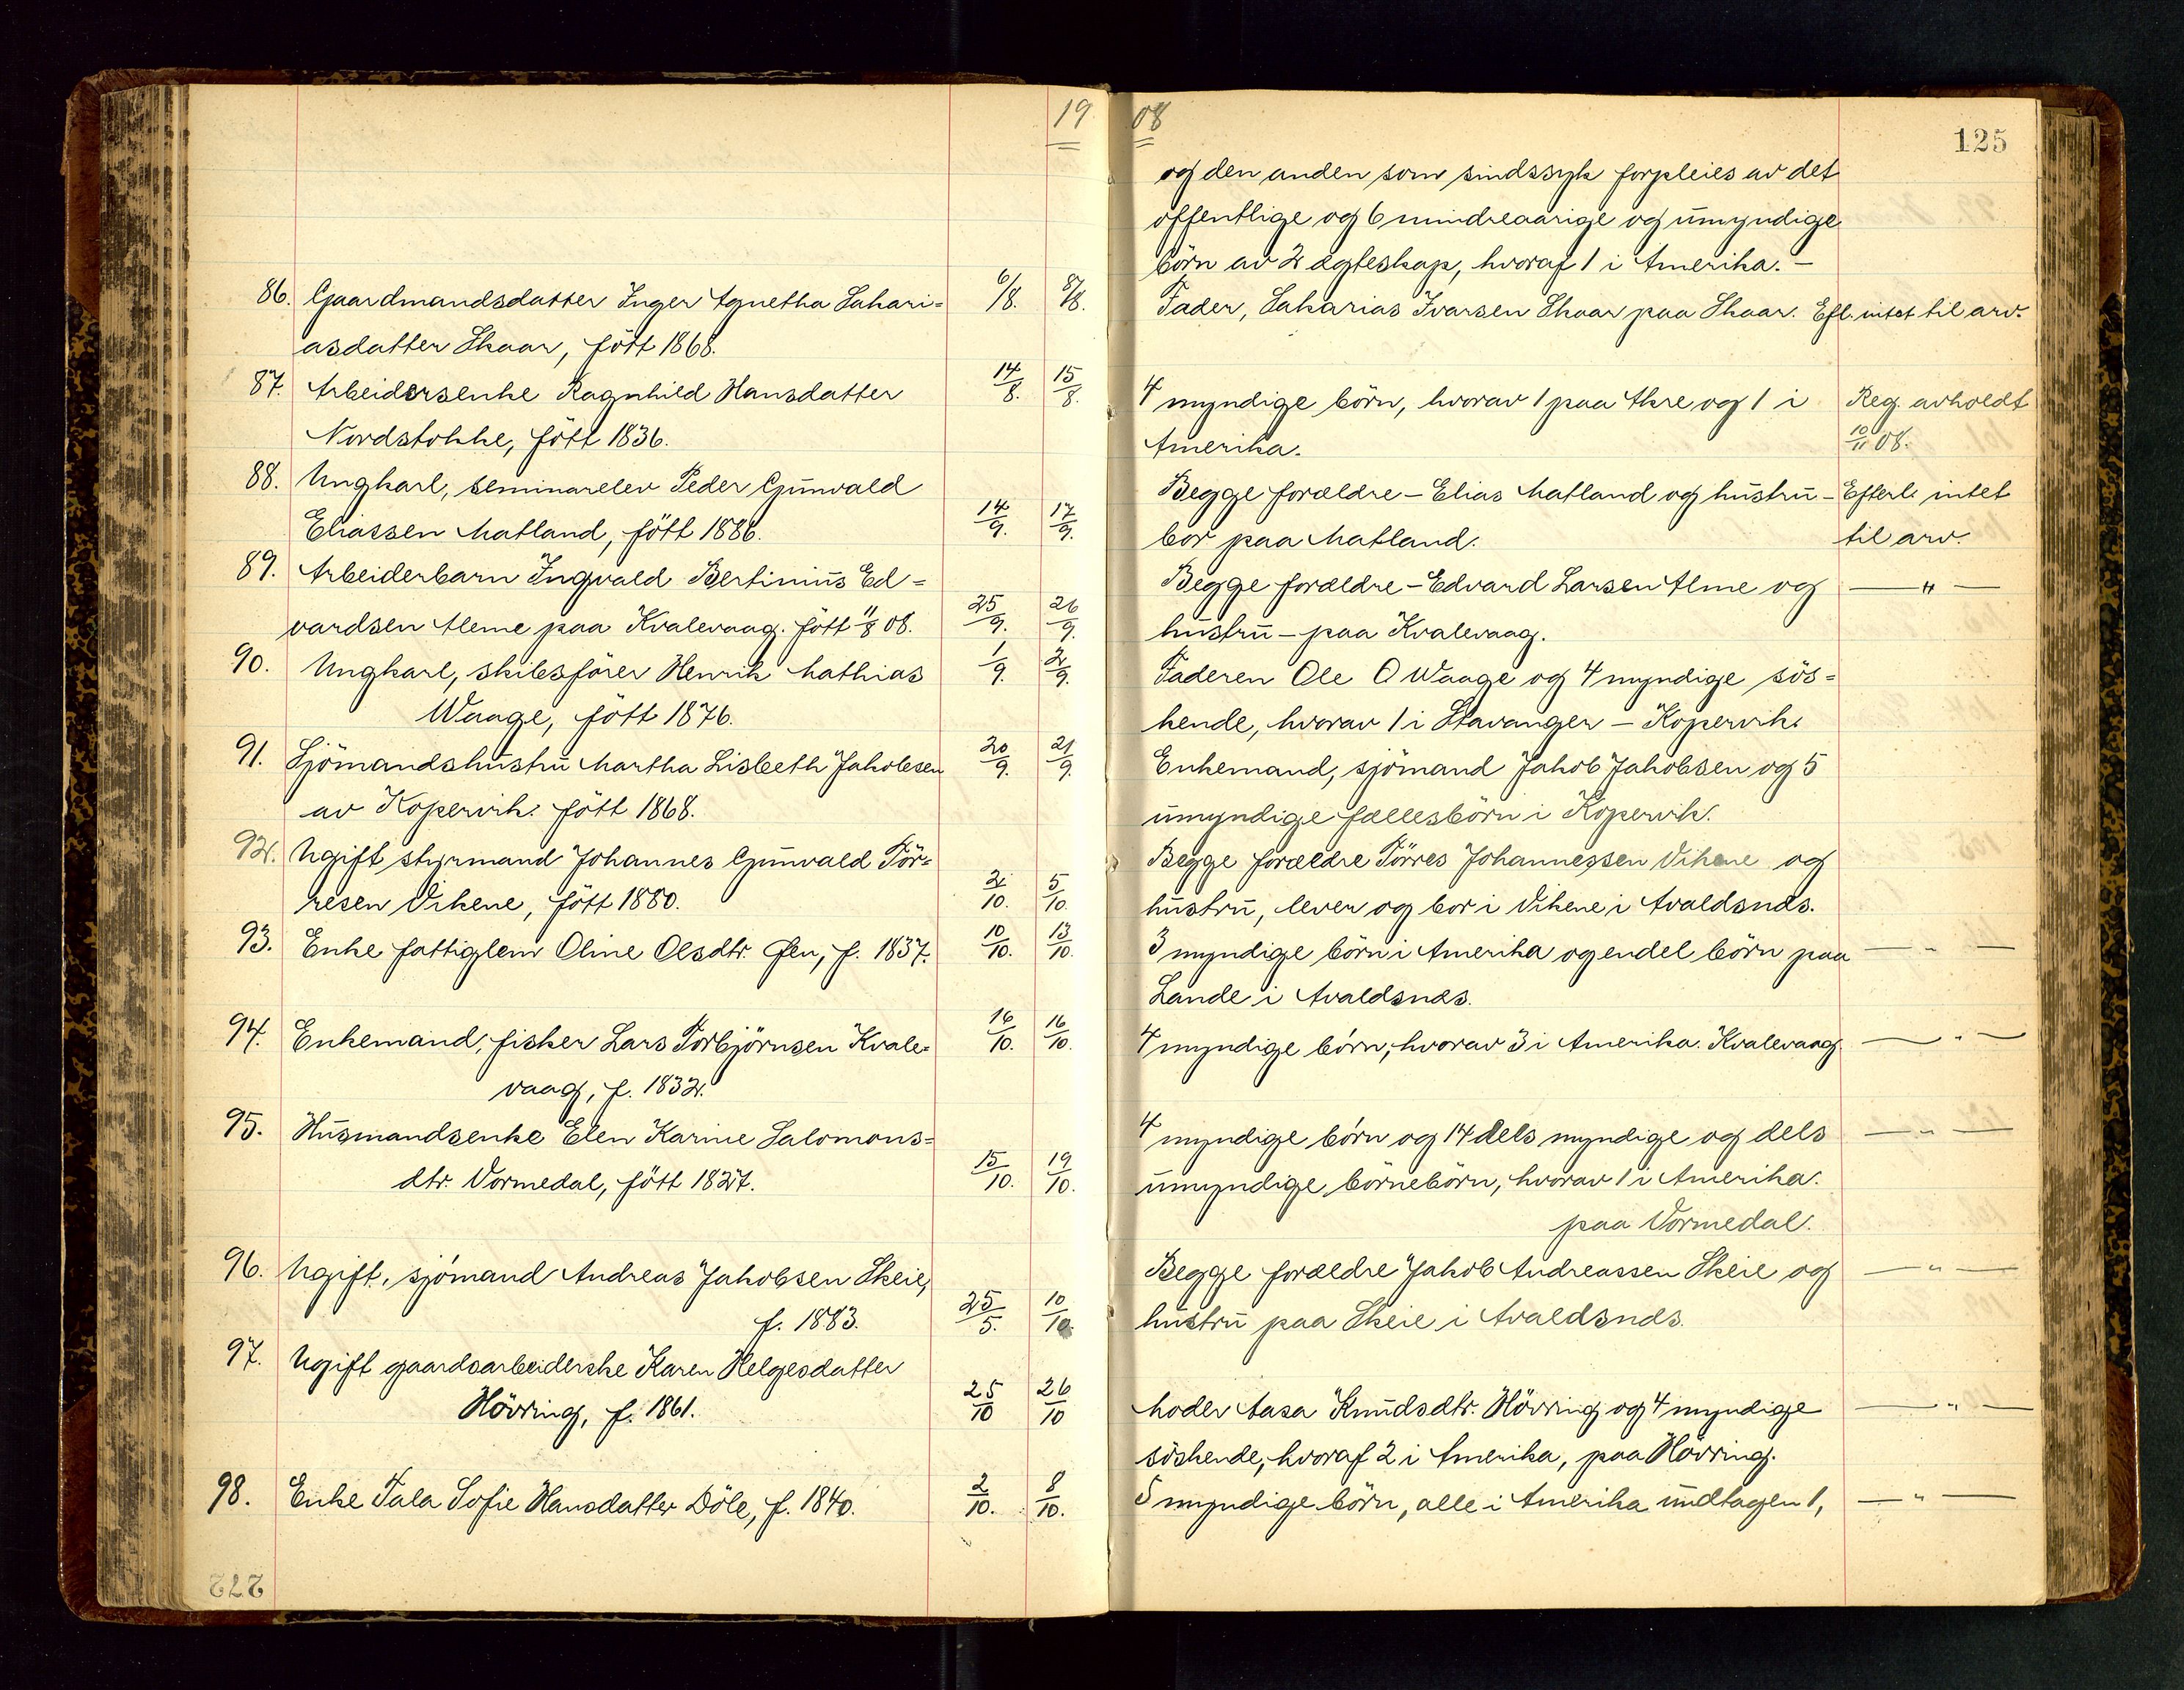 19 08
125
og den anden som sindssyk forpleies av det
offentlige og 6 mindreaarige og umyndige
börn av 2 ægteskap, hvoraf 1 i Amerika. –
86. Gaardmandsdatter Inger Agnetha Sakari= 6/8. 8/8. Fader, Sakarias Ivarsen Skaar paa Skaar. Efl. intet til arv.
asdatter Skaar, fött 1868.
87. Arbeidersenke Ragnhild Hansdatter 14/8. 15/8. 4 myndige börn, hvorav 1 paa Akre og 1 i Reg. avholdt
Nordstokke, fött 1836. Amerika. 10/11 08.
88. Ungkarl, seminarelev Peder Gunvald Begge forældre – Elias Matland og hustru – Efterl. intet
Eliassen Matland, fött 1886. 14/9. 17/9. bor paa Matland. til arv.
89. Arbeiderbarn Ingvald Bertinius Ed= Begge forældre – Edvard Larsen Alme og — " —
vardsen Aleme paa Kvalevaag. fött 11/8 08. 25/9. 26/9. hustru – paa Kvalevaag.
90. Ungkarl, skibsförer Henrik Mathias 1/9. 2/9. Faderen Ole O Waage og 4 myndige sös=
Waage, fött 1876. kende, hvorav 1 i Stavanger – Kopervik.
91. Sjömandshustru Martha Lisbeth Jakobsen 20/9. 21/9. Enkemand, sjömand Jakob Jakobsen og 5
av Kopervik. fött 1868. umyndige fællesbörn i Kopervik.
92. Ugift styrmand Johannes Gunvald Tör= Begge forældre Törres Johannessen Vikene og
resen Vikene, fött 1880. 2/10. 5/10. hustru, lever og bor i Vikene i Avaldsnds.
93. Enke fattiglem Oline Olsdtr. Øen, f. 1837. 10/10. 13/10. 3 myndige börn i Amerika og endel börn paa — " —
Lande i Avaldsnæs.
94. Enkemand, fisker Lars Torbjörnsen Kvale= 16/10. 16/10. 4 myndige börn, hvorav 3 i Amerika. Kvalevaag. — " —
vaag, f. 1832.
95. Husmandsenke Elen Karine Salomons= 4 myndige börn og 14 dels myndige og dels — " —
dtr. Vormedal, fött 1827. 15/10. 19/10. umyndige börnebörn, hvorav 1 i Amerika.
paa Vormedal.
96. Ugift, sjömand Andreas Jakobsen Skeie, Begge forældre Jakob Andreassen Skeie og — " —
f. 1883. 25/5. 10/10. hustru paa Skeie i Avaldsnds.
97. Ugift gaardsarbeiderske Karen Helgesdatter
Hövring, f. 1861. 25/10 26/10 Moder Aasa Knudsdtr. Hövring og 4 myndige — " —
söskende, hvoraf 2 i Amerika, paa Hövring.
98. Enke Tala Sofie Hansdatter Döle, f. 1840. 2/10. 8/10. 5 myndige börn, alle i Amerika undtagen 1, — " —
272